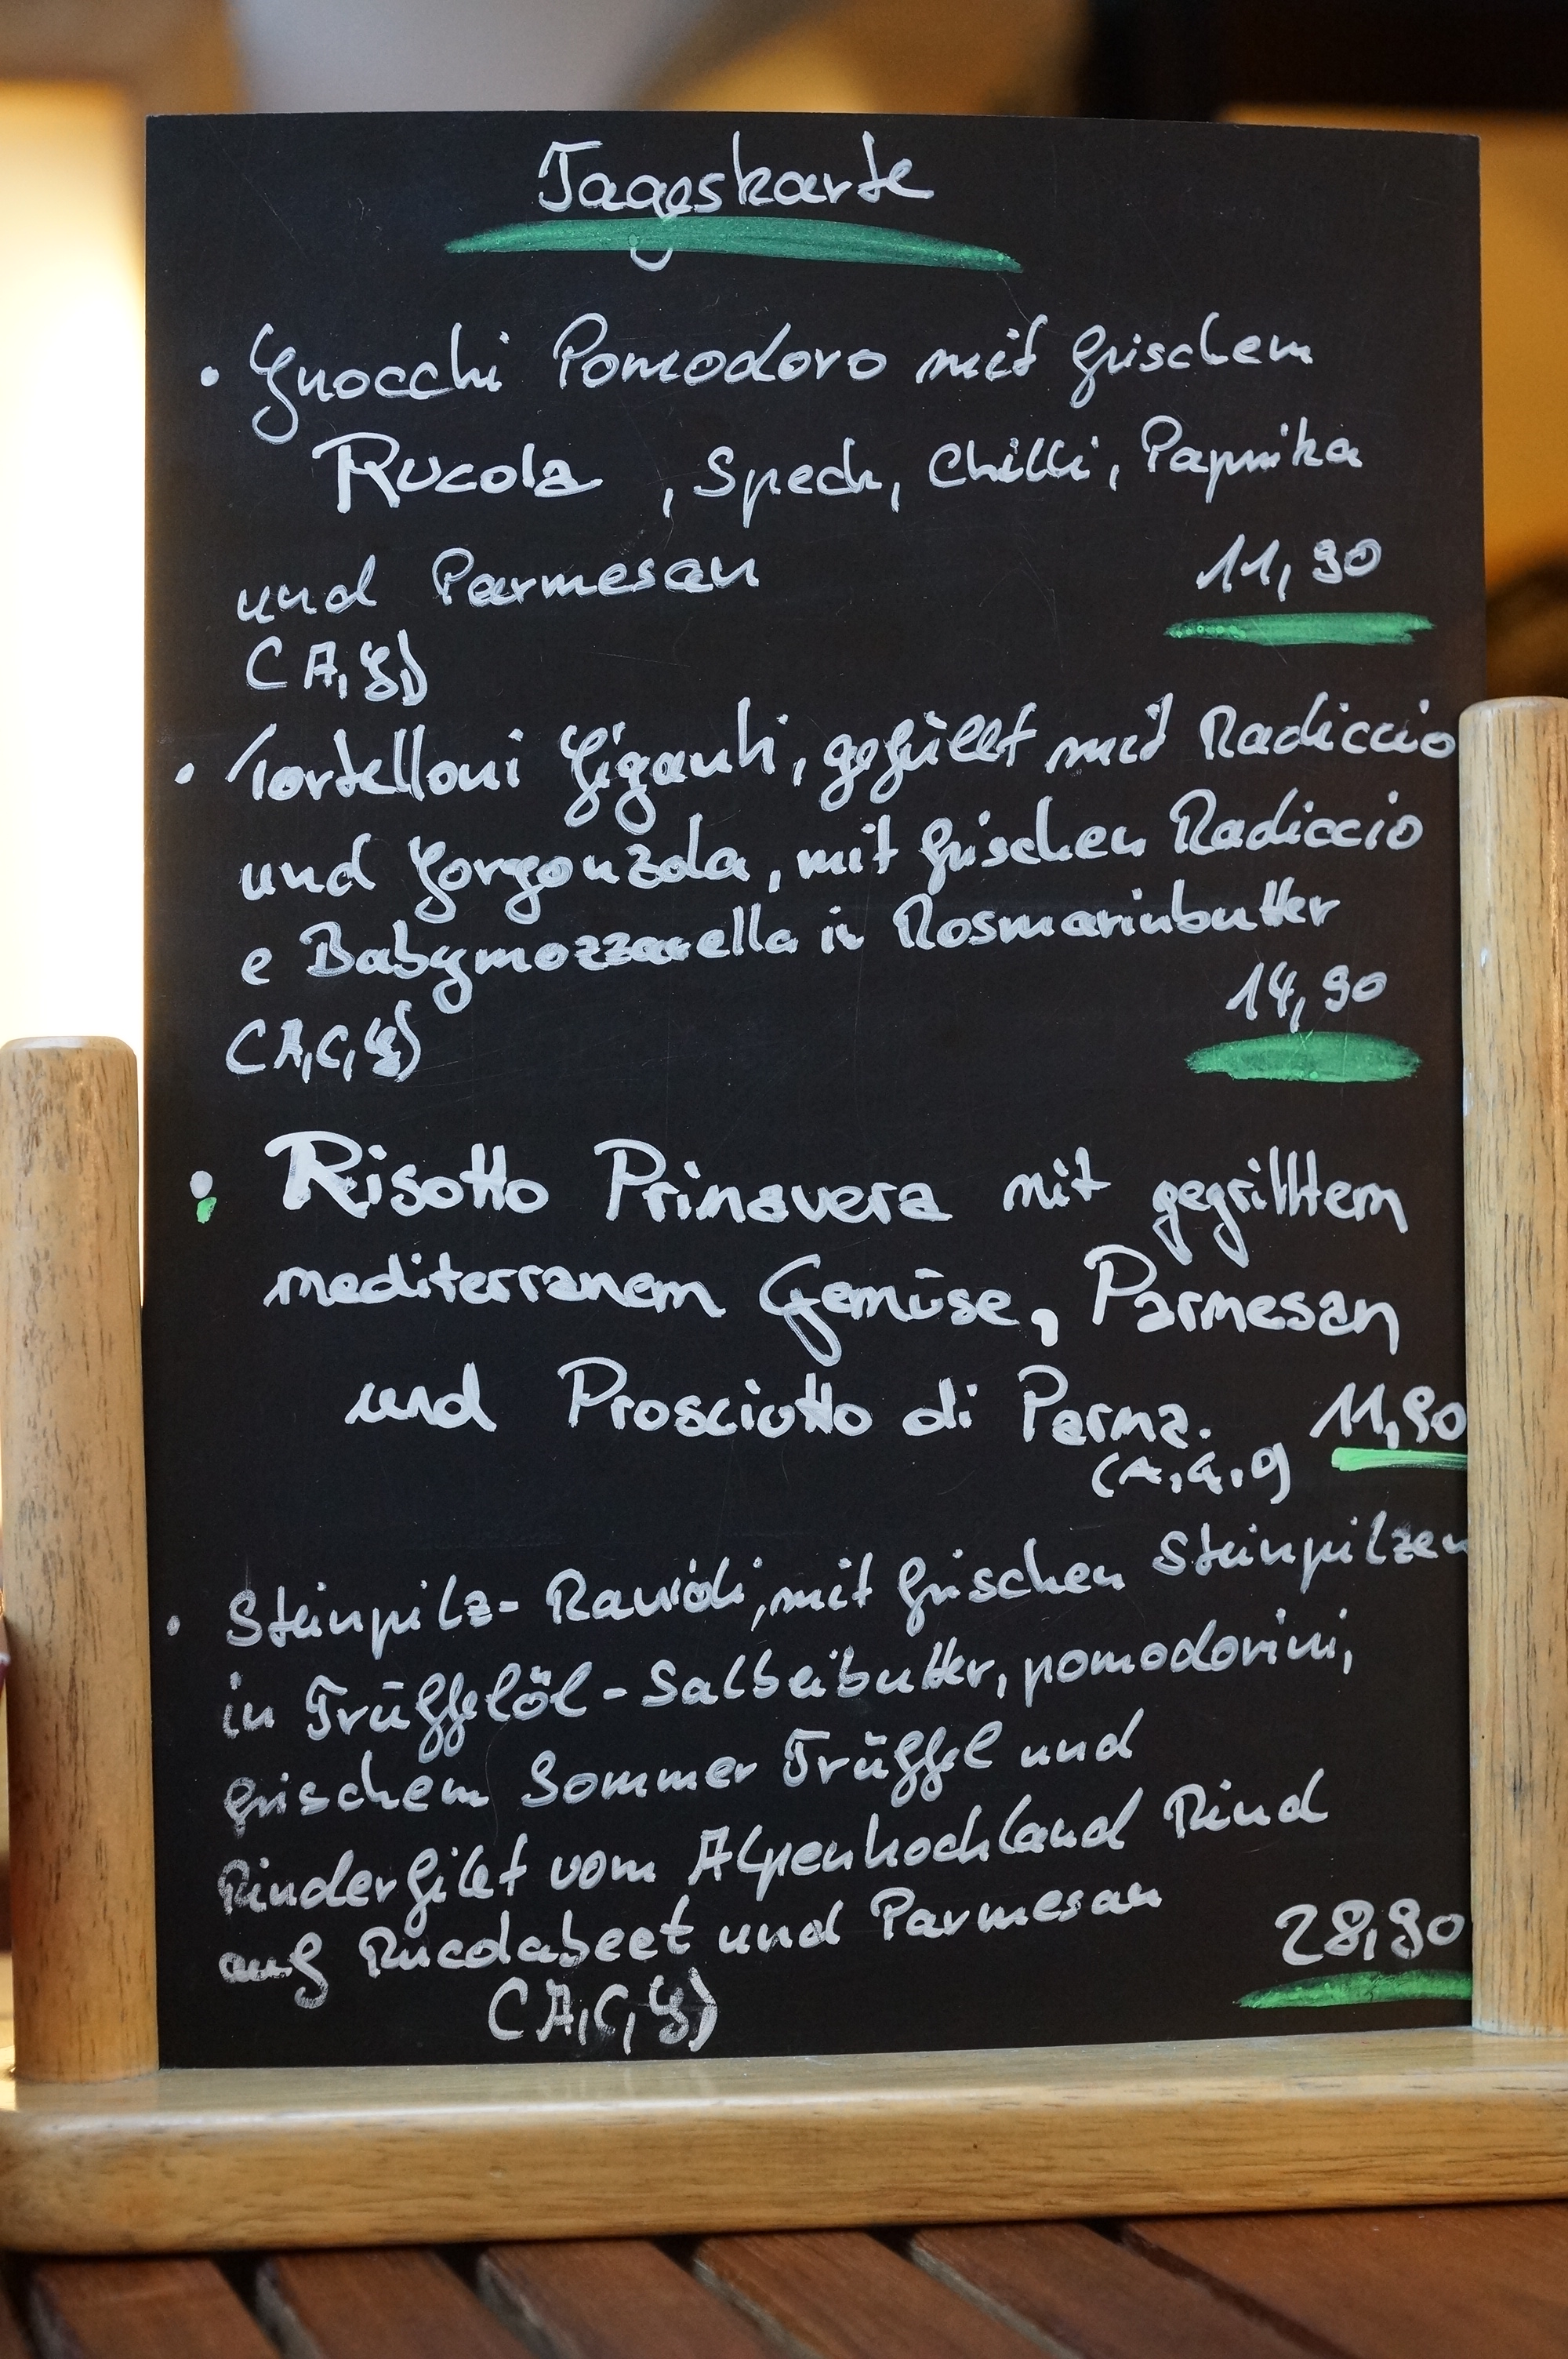 Tageskarte
• Gnocchi Pomodoro mit frischem
Rucola , Speck, Chilli, Paprika
und Parmesan 11,90
(A,G)
• Tortelloni Giganti, gefüllt mit Radiccio
und Gorgonzola, mit frischen Radiccio
e Babymozzarella in Rosmarinbutter
14,90
(A,C,G)
• Risotto Prinavera mit gegrilltem
mediterranem Gemüse, Parmesan
und Prosciutto di Parma. 11,90
(A,G,9)
• Steinpilz-Ravioli, mit frischen Steinpilzen
in Trüffelöl-Salbeibutter, pomodorini,
frischem Sommer Trüffel und
Rinderfilet vom Alpenhochland Rind
auf Rucolabeet und Parmesan 28,90
(A,C,G)